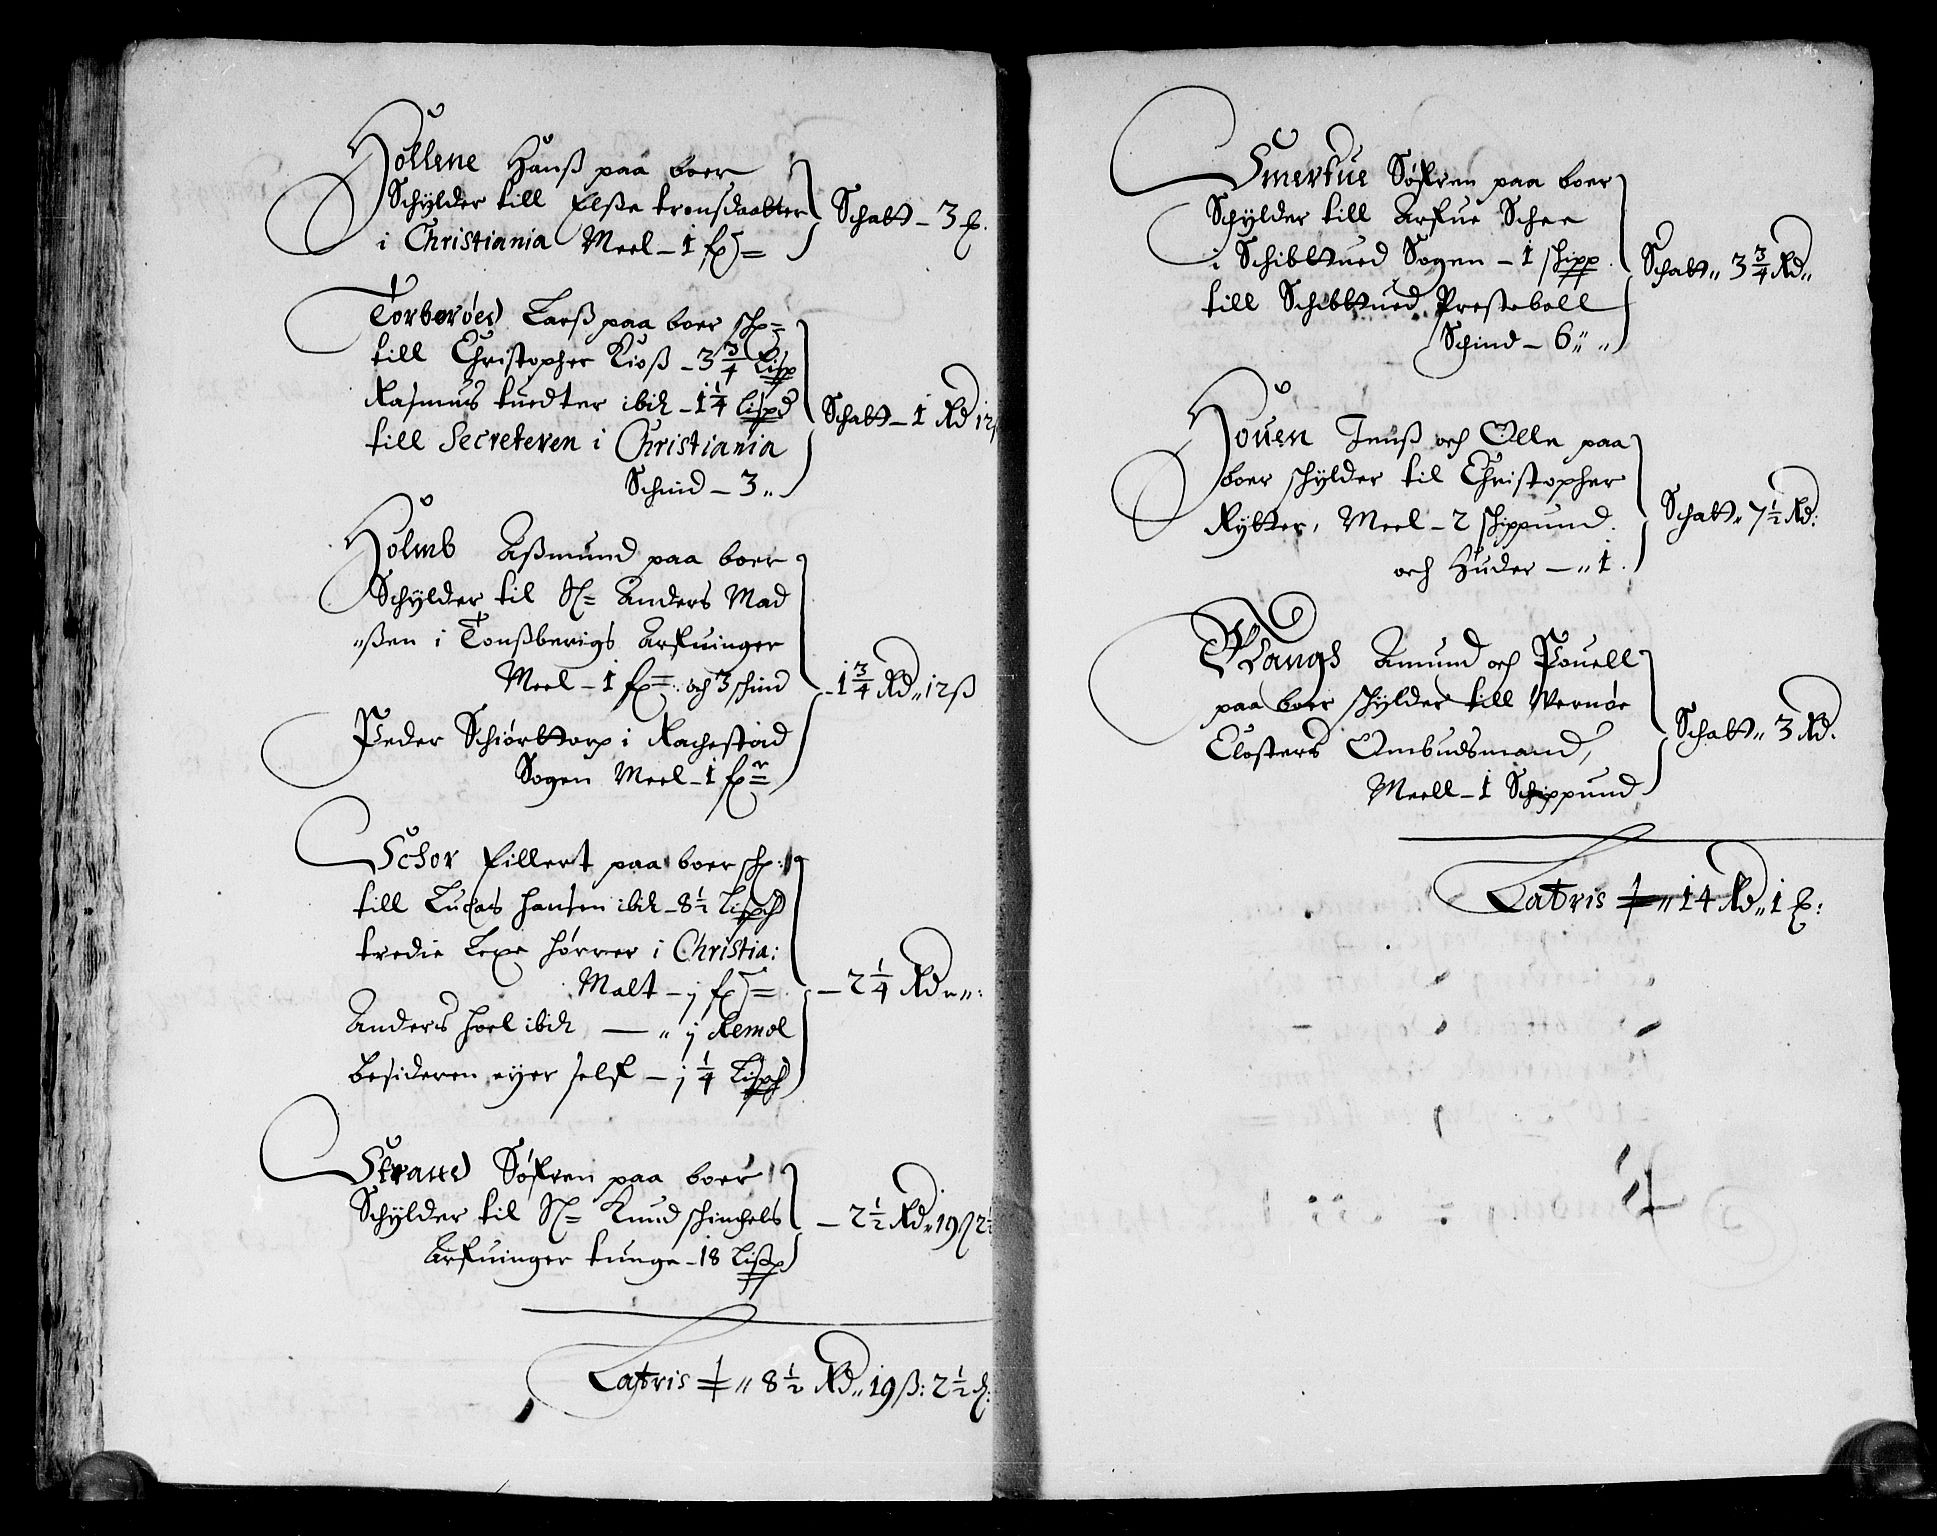 Hollene Hanß paa boer
Schylder till Elße tronsdaatter
i Christiania Meel - 1 fp
Schatt - 3
Torberöed Larß paa boer sch
till Christopher Kioß - 3 3/4 Lispp
Rasmus tuedter ibid - 1 1/4 Lispd
till Secreteren i Christiania
Schind - 3
Schatt - 1 Rd 12
Holmb Aßmund paa boer
Schylder til Sl= Anders Mad
"ßen i Tonßberigs Arfuinger
Meel - 1 fp. och 3 schind
- 1 3/4 Rd 12 ß
Peder Schiørttorp i Rachestad
Sogen Meel - 1 fp
Schor Eillert paa boer sch:
till Lucas hansen ibid - 8 1/2 Lispd
tredie Lexe hörrer i Christia:
Malt - j fp
- 2 1/4 Rd
Anders hoel ibid — " j Remol
besideren eyer self - j 1/4 Lispd
Strand Søfren paa boer
Schylder til Sl= Knud schinchels
Arfuinger tunge - 18 Lispp
- 2 1/2 Rd 19 ß 2
Latris " 8 1/2 Rd " 19 ß: 2 1/2
Smertue Søfren paa boer
Schylder till Arfue Schee
i Schibttued Sogen - 1 shipp
till Schibttued Presteboll
Schind - 6 "
Schatt " 3 3/4 Rd "
Houen Jenß och Olle paa
boer schylder til Christopher
Rytter, Meel - 2 schippund.
och Huder — " 1.
Schatt " 7 1/2 Rd:
Wangs Amund och Pouell
paa boer schylder till Wernøe
Closters Ombudsmand,
Meell - 1 Schippund
Schatt " 3 Rd.
Latris " 14 Rd " 1